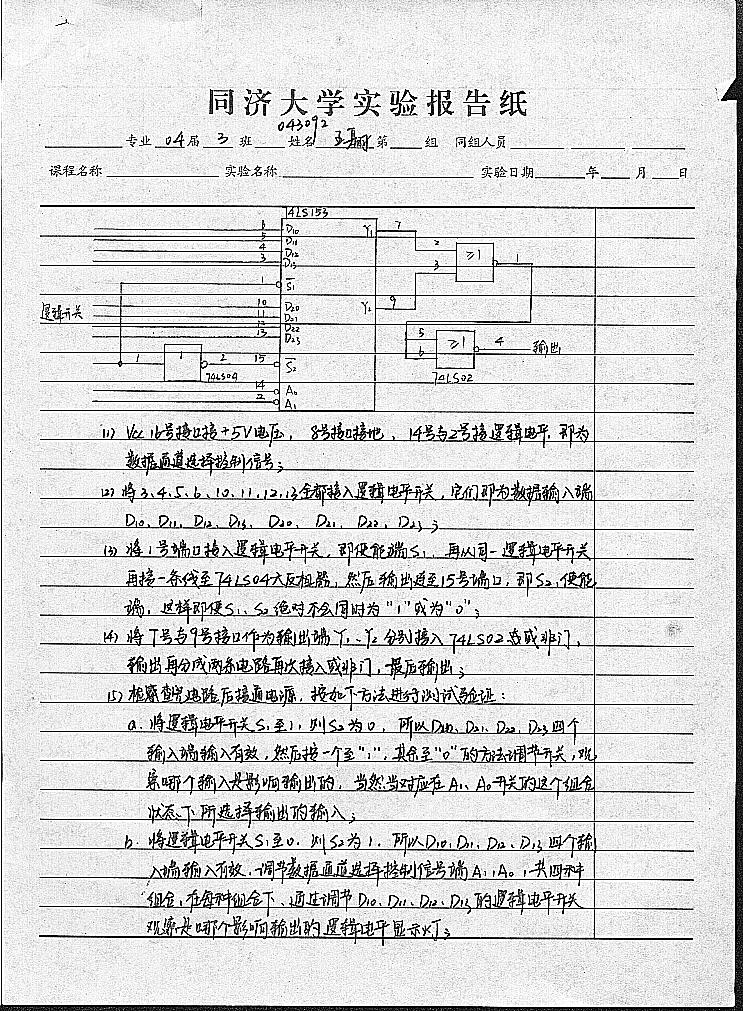 同济大学实验报告纸
043092
专业 04 届 3 班 姓名 第 组 同组人员
课程名称 实验名称 实验日期 年 月 日
74LS153
6 D10 Y1 7
5 D11
4 D12
3 D13
2 ≥1 1
3
1 S1
逻辑开关
10 D20 Y2 9
11 D21
12 D22
13 D23
5 ≥1 4 输出
6
1 1 2 15 S2
74LS04
74LS02
14 A0
2 A1
(1) Vcc 16号接口接+5V电压，8号接口接地，14号与2号接逻辑电平，即为
数据通道选择控制信号；
(2) 将3、4、5、6、10、11、12、13全部接入逻辑电平开关，它们即为数据输入端
D10、D11、D12、D13、D20、D21、D22、D23；
(3) 将1号端口接入逻辑电平开关，即使能端S1，再从同一逻辑电平开关
再接一条线至74LS04六反相器，然后输出连至15号端口，即S2使能
端，这样即使S1、S2绝对不会同时为"1"或为"0"；
(4) 将7号与9号接口作为输出端Y1、Y2分别接入74LS02 或非门，
输出再分成两条电路再次接入或非门，最后输出；
(5) 检察查完电路后接通电源，按如下方法进行测试验证：
a. 将逻辑电平开关S1至1，则S2为0，所以D20、D21、D22、D23四个
输入端输入有效，然后按一个至"1"，其余至"0"的方法调节开关，观
察哪个输入是影响输出的，当然当对应在A1、A0开关的这个组合
状态下所选择输出的输入；
b. 将逻辑电平开关S1至0，则S2为1，所以D10、D11、D12、D13四个输
入端输入有效，调节数据通道选择控制信号端A1、A0，共四种
组合，在每种组合下，通过调节D10、D11、D12、D13的逻辑电平开关
观察是哪个影响输出的逻辑电平显示灯；